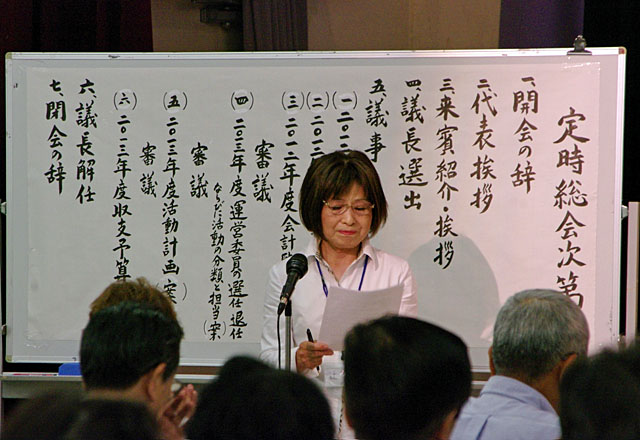 定時総会次第
一、開会の辞
二、代表挨拶
三、来賓紹介・挨拶
四、議長選出
五、議事
(一)二〇
(二)二〇
(三)二〇一二年度会計監
審議
(四)二〇一三年度運営委員の選任退任
ならびに活動の分類と担当(案)
審議
(五)二〇一三年度活動計画(案)
審議
(六)二〇一三年度収支予算
六、議長解任
七、閉会の辞